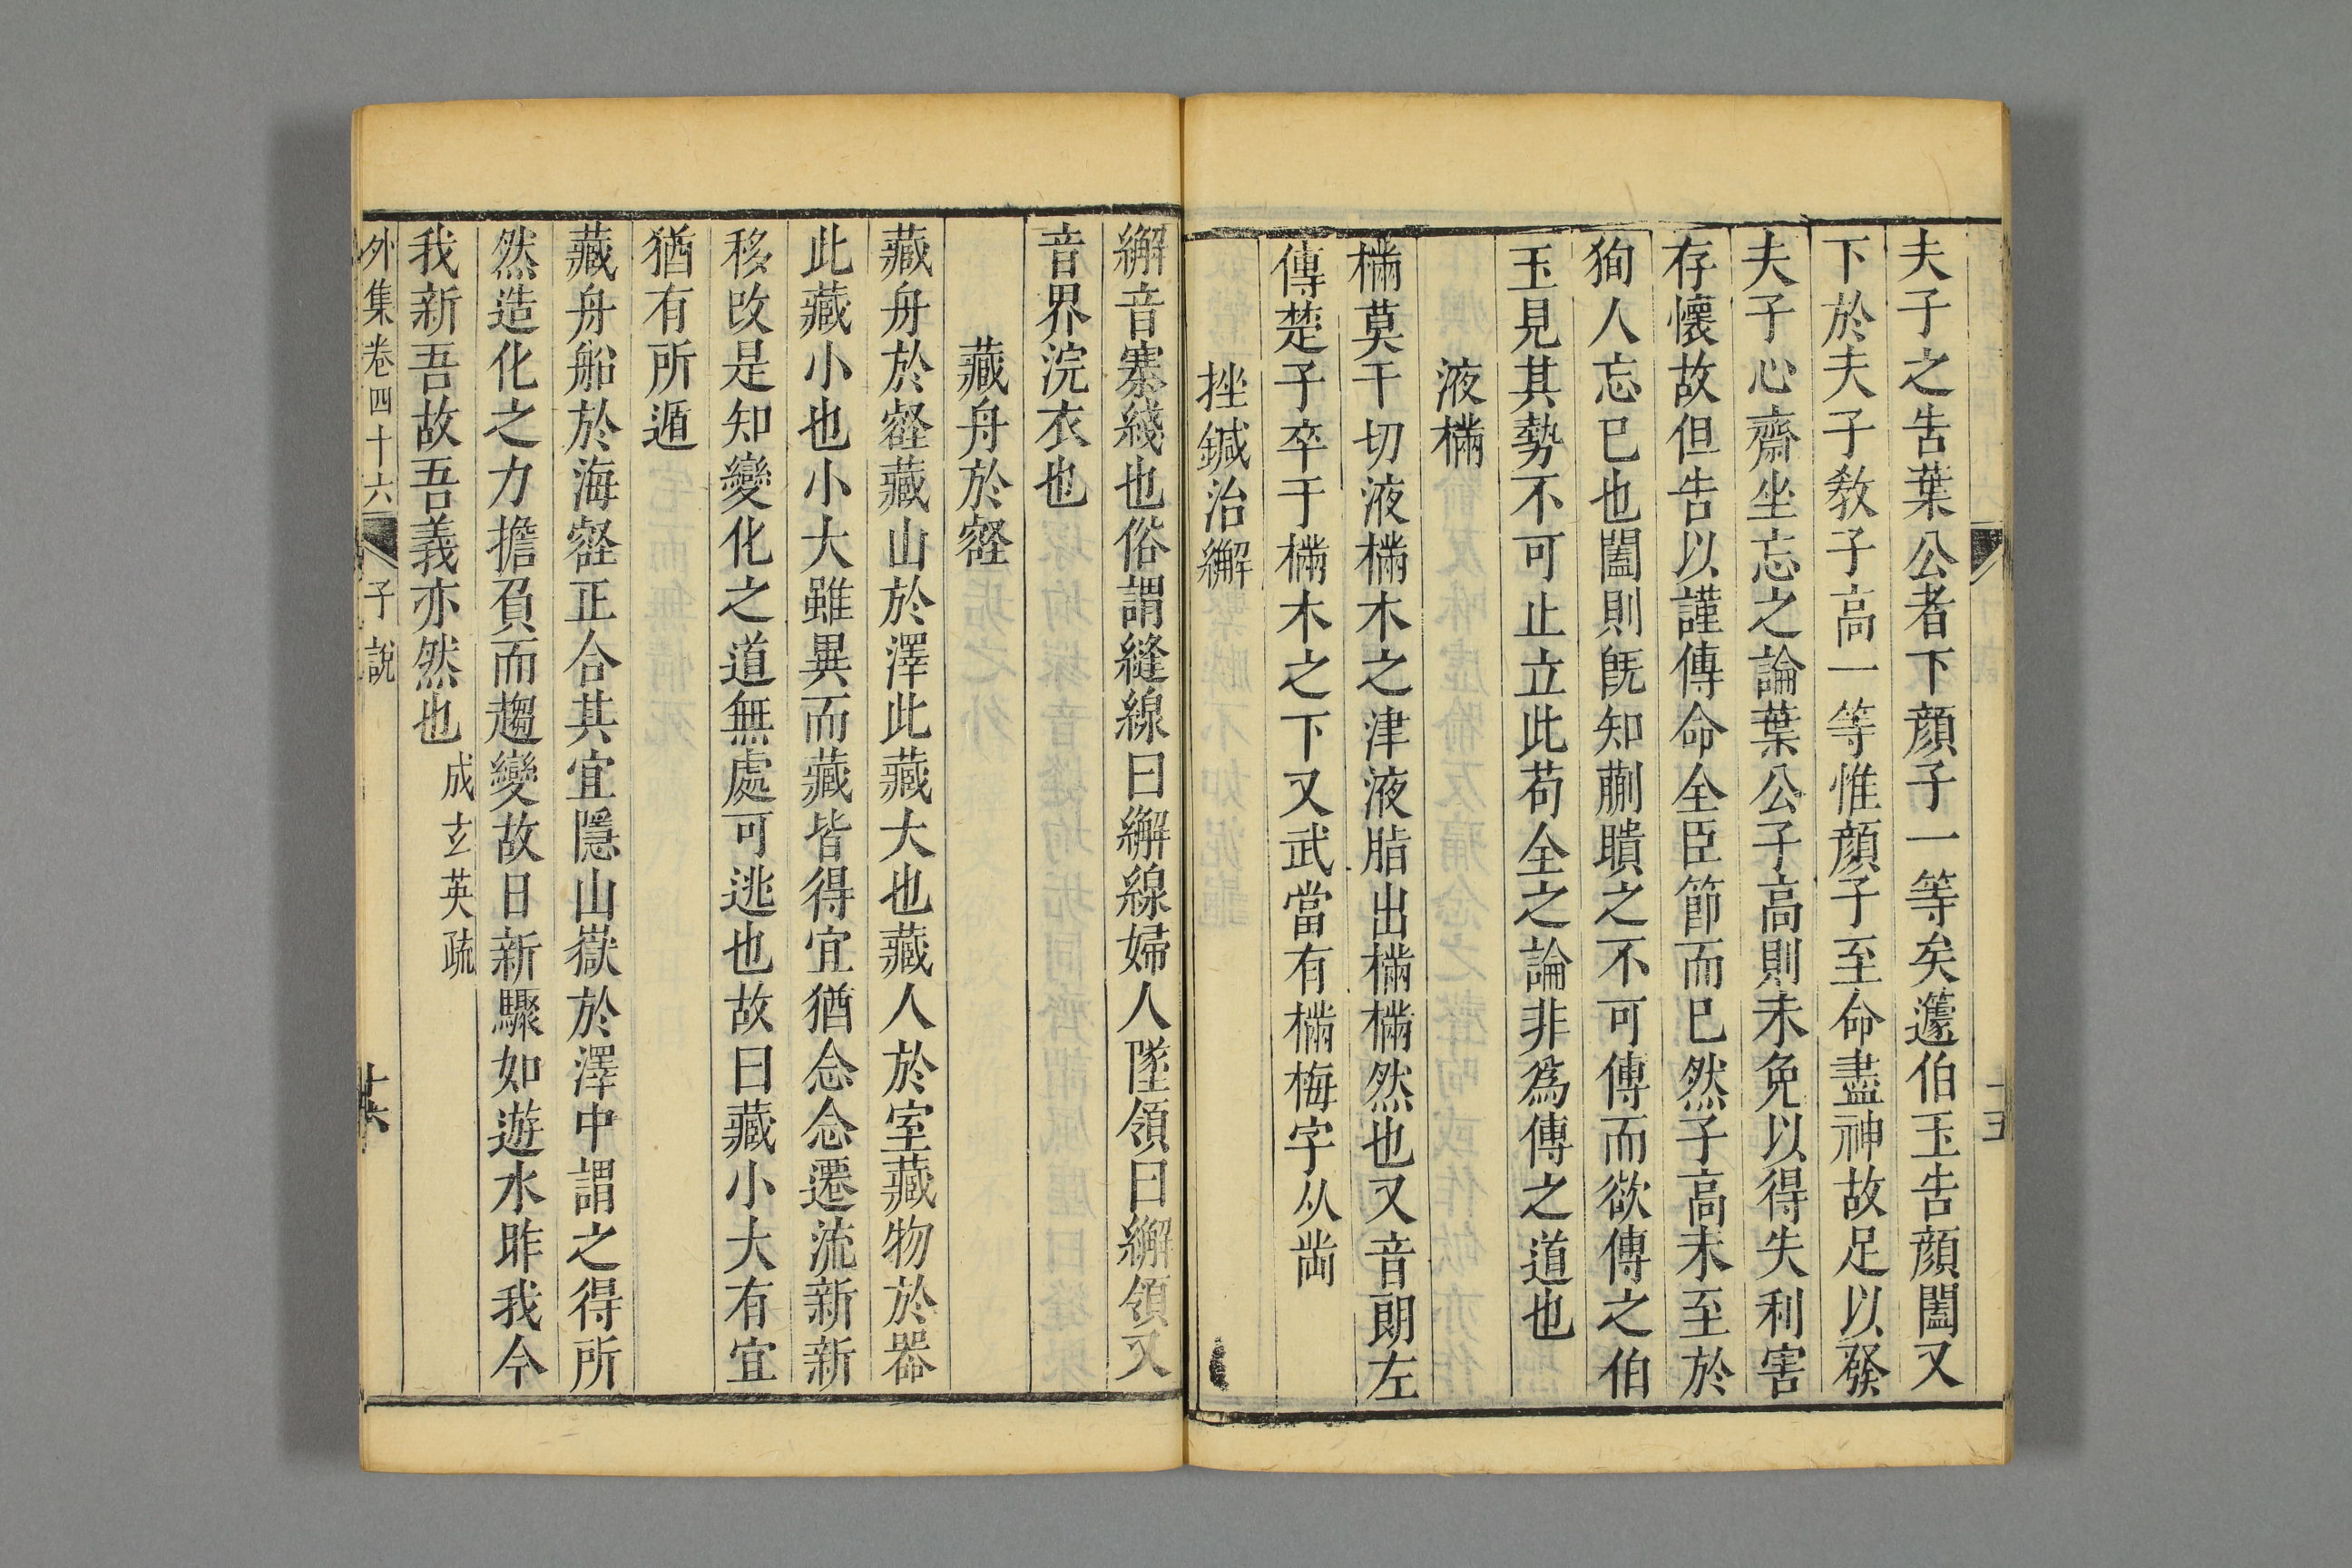 夫子之告葉公者下顏子一等矣蘧伯玉告顏闔又
下於夫子教子高一等惟顏子至命盡神故足以發
夫子心齋坐忘之論葉公子高則未免以得失利害
存懷故但告以謹傳命全臣節而已然子高未至於
狥人忘已也闔則旣知蒯聵之不可傳而欲傳之伯
玉見其勢不可止立此苟全之論非為傳之道也
液樠
樠莫干切液樠木之津液脂出樠樠然也又音朗左
傳楚子卒于樠木之下又武當有樠梅字从㒼
挫鍼治繲
繲音寨綫也俗謂縫線曰繲線婦人墜領曰繲領又
音界浣衣也
藏舟於壑
藏舟於壑藏山於澤此藏大也藏人於室藏物於器
此藏小也小大雖異而藏皆得宜猶念念遷流新新
移改是知變化之道無處可逃也故曰藏小大有宜
猶有所遁
藏舟船於海壑正合其宜隱山嶽於澤中謂之得所
然造化之力擔負而趨變故日新驟如遊水昨我今
我新吾故吾義亦然也 成玄英疏
外集卷四十六 子說 十六